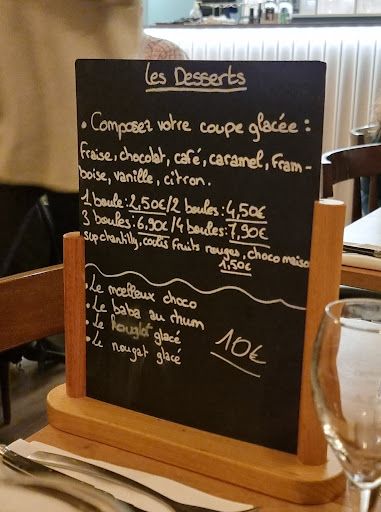 Les Desserts
• Composez votre coupe glacée :
fraise, chocolat, café, caramel, fram-
boise, vanille, citron.
1 boule : 2,50€ / 2 boules : 4,50€
3 boules : 6,90€ / 4 boules : 7,90€
sup chantilly, coulis fruits rouges, choco maison
1,50€
• Le moelleux choco
• Le baba au rhum
• Le glacé
• Le nougat glacé
10€